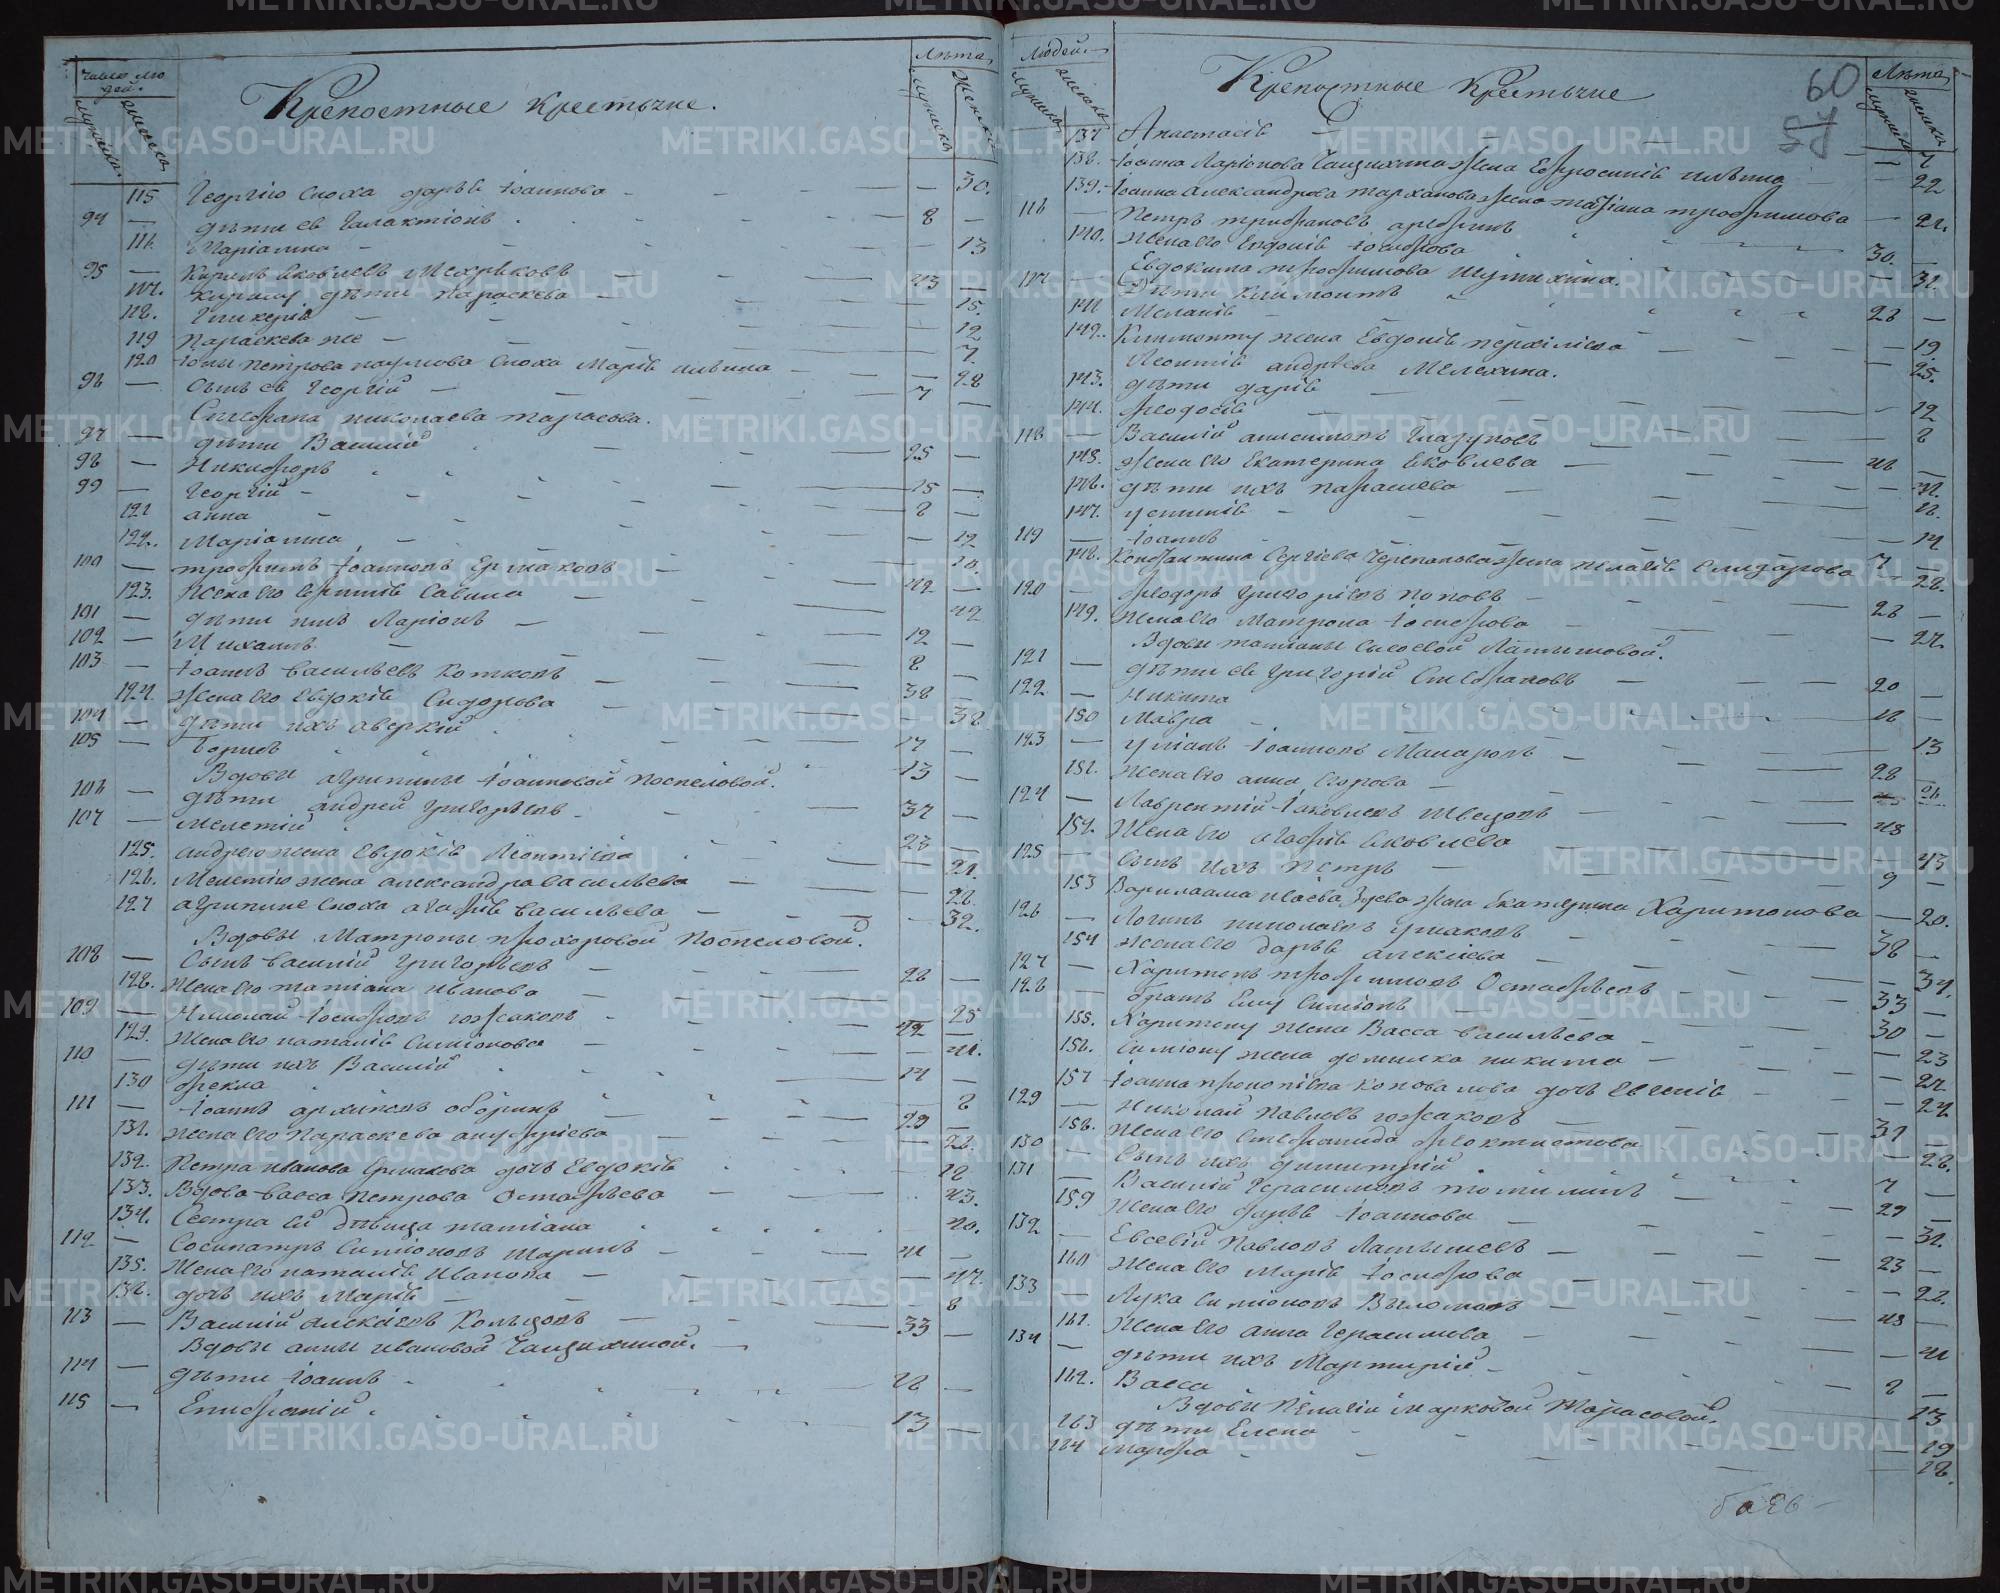 Число людей.
Мужска
женска
Крепостные крестьяне.
Лѣта
Мужска
Женска
115 Георгію сноха Дарья Іоаннова — — 30.
94 — дѣти ея Галактіонъ — 8 —
116. Маріамна — — 13
95 — Кирилъ Яковлевъ — 43 —
117. Кирилу дѣти Параскева — — 15.
118. Гликерія — — 12
119 Параскева же — — 7
120 Іоны Петрова Наумова сноха Марія Ильина — — 28
96 — сынъ ея Георгій — 7 —
Стефана Николаева Тарасова.
97 — дѣти Василій — 25 —
98 — Никифоръ — 15 —
99 — Георгій — 8 —
121 Анна — — 12
122. Маріамна — — 10.
100 — Трофимъ Іоанновъ Ермаковъ — 42 —
123. Жена его Савина — — 42
101 — дѣти ихъ Ларіонъ — 12 —
102 — Михаилъ — 8 —
103 — Іоаннъ Васильевъ Котковъ — 38 —
124. Жена его Евдокія Сидорова — — 38.
104 — дѣти ихъ Аверкій — 17 —
105 — Борисъ — 13 —
Вдовы Агрипины Іоанновой Поспеловой.
106 — дѣти Андрей Григорьевъ — 37 —
107 — Мелетій — 23 —
125. Андрею жена Евдокія Леонтіева — — 21.
126. Мелетію жена Александра Васильева — — 28.
127 Агрипине сноха Агафія Васильева — — 32.
Вдовы Матроны Прохоровой Поспеловой.
108 — Сынъ Василій Григорьевъ — 26 —
128. Жена его Татіана Иванова — — 25
109 — Николай Іосифовъ Южаковъ — 42 —
129. Жена его Наталія Симіонова — — 41.
110 — дѣти ихъ Василій — 14 —
130 Фекла — — 8
111 — Іоаннъ Архиповъ Оборинъ — 29 —
131. Жена его Параскева — — 28.
132. Петра Иванова Ермакова дочь Евдокія — — 12
133. Вдова Васса Петрова Остафьева — — 43.
134. Сестра ей дѣвица Татіана — — 40.
112 — Сосипатръ Симіоновъ Шаринъ — 41 —
135. Жена его Наталія Иванова — — 47.
136. дочь ихъ Марія — — 8
113 — Василій Алексіевъ Кольцовъ — 33 —
Вдовы Анны Ивановой Гаццихиной.
114 — дѣти Іоаннъ — 26 —
115 — Епифаній — 13 —
Людей.
Мужска
женска
Крепостные Крестьяне
60
57
Лѣта
мужска
женска
137 Анастасія — — 7
138. Іоанна Ларіонова жена Евфросинія Ильина — — 22
139. Іоанна Александрова Тарханова жена Татіана Трофимова — — 21.
116 — Петръ Трифановъ — 30. —
140. Жена его Евдокія Іосифова — — 31.
Евдокима Трофимова Шутихина.
117 — Дѣти Климонтъ — 26 —
141 Меланія — — 19.
142. Климонту жена Евдокія — — 25.
Леонтія Андрѣева Мелехина.
143. дѣти Дарія — — 12
144. Феодосія — — 8
118 — Василій Анисимовъ Глазуновъ — 46 —
145. Жена его Екатерина Яковлева — — 41.
146. дѣти ихъ Парасцева — — 16.
147. Устинія — — 14
119 — Іоаннъ — 7 —
148. Константина Сергіева Черепанова жена Пелагія — — 28.
120 — Феодоръ Григоріевъ Поповъ — 26 —
149. Жена его Матрона Іосифова — — 27.
Вдовы Татіаны Сысоевой Латышовой.
121 — дѣти ея Григорій Стефановъ — 20 —
122 — Никита — 16 —
150 Мавра — — 13
123 — Уліанъ Іоанновъ Макаровъ — 28 —
151. Жена его Анна Егорова — — 26.
124 — Лаврентій Іаковлевъ Швецовъ — 43 —
152. Жена его Агафія Яковлева — — 43
125 Сынъ ихъ Петръ — 9 —
153 Варлаама Исаева Зуева жена Екатерина Харитонова — — 20.
126 — Логинъ Николаевъ Ермаковъ — 38 —
154 Жена его Дарья Алексіева — — 37.
127 — Харитонъ Трофимовъ Остафьевъ — 33 —
128 братъ Ему Симіонъ — 30 —
155. Харитону жена Васса Васильева — — 23
156. Симіону жена Домника Никитина — — 22
157 Іоанна Прокопіева Коновалова дочь Евгенія — — 27
129 — Николай Павловъ Южаковъ — 31 —
158. Жена его Стефанида Феоктистова — — 28.
130 — Сынъ ихъ Димитрій — 7 —
131 — Василій Герасимовъ Томилинъ — 29 —
159 Жена его Дарья Іоаннова — — 31.
132 — Евсевій Павловъ Латышевъ — 23 —
160 Жена его Марія Іосифова — — 22.
133 — Лука Симіоновъ — 43 —
161. Жена его Анна Герасимова — — 41
134 — дѣти ихъ Мартирій — 8 —
162. Васса — — 13
Вдовы Пелагіи Марковой Тарасовой.
163 дѣти Елена — — 19
164 Марфа — — 18.